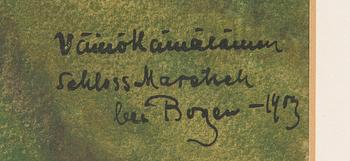 Väinö Hämäläinen
Schloss Maretsch
bei Bozen - 1913